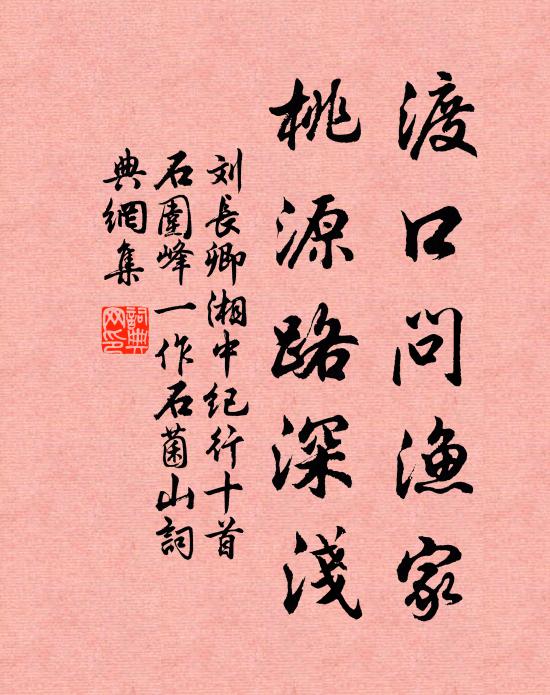 渡口问渔家
桃源路深淺
刘長卿湘中纪行十首
石圍峰一作石菌山詞
典網集
詞典網印